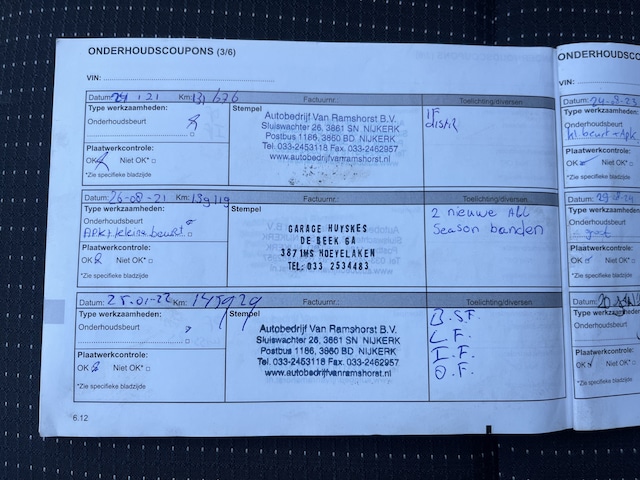 ONDERHOUDSCOUPONS (3/6)
VIN:
Datum: 21 Km: Factuurnr.: Toelichting/diversen
Type werkzaamheden:
Onderhoudsbeurt
Stempel
Autobedrijf Van Ramshorst B.V.
Sluiswachter 26, 3861 SN NIJKERK
Postbus 1186, 3860 BD NIJKERK
Tel. 033-2453118 Fax. 033-2462957
www.autobedrijfvanramshorst.nl
Plaatwerkcontrole:
OK Niet OK*
*Zie specifieke bladzijde
Datum: 26-08-21 Km: 139119 Factuurnr.: Toelichting/diversen
Type werkzaamheden:
Onderhoudsbeurt
APK+kleine beurt
Stempel
GARAGE HUYSKES
DE BEEK 6A
3871MS HOEVELAKEN
TEL: 033 2534483
2 nieuwe All
Season banden
Plaatwerkcontrole:
OK Niet OK*
*Zie specifieke bladzijde
Datum: 25-01-22 Km: 145929 Factuurnr.: Toelichting/diversen
Type werkzaamheden:
Onderhoudsbeurt
Stempel
Autobedrijf Van Ramshorst B.V.
Sluiswachter 26, 3861 SN NIJKERK
Postbus 1186, 3860 BD NIJKERK
Tel. 033-2453118 Fax. 033-2462957
www.autobedrijfvanramshorst.nl
B.S.F.
L.F.
I.F.
O.F.
Plaatwerkcontrole:
OK Niet OK*
*Zie specifieke bladzijde
6.12
ONDERHOUDSCO
VIN:
Datum: 24-08-23
Type werkzaamheden:
Onderhoudsbeurt
kl. beurt + Apk
Plaatwerkcontrole:
OK Niet OK*
*Zie specifieke bladzijde
Datum:
Type werkzaamheden:
Onderhoudsbeurt
groot
Plaatwerkcontrole:
OK Niet OK*
*Zie specifieke bladzijde
Datum:
Type werkzaamheden:
Onderhoudsbeurt
Plaatwerkcontrole:
OK Niet OK*
*Zie specifieke bladzijde